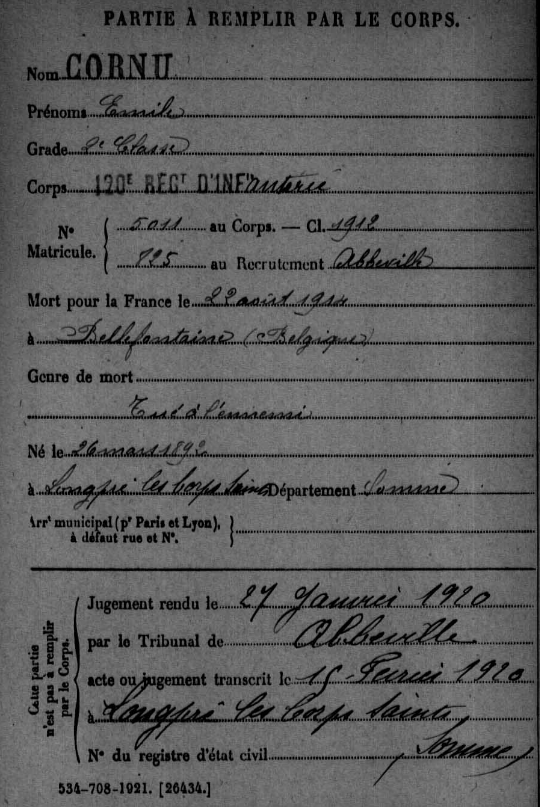 PARTIE À REMPLIR PAR LE CORPS.
Nom CORNU
Prénoms Emile
Grade 2e Classe
Corps 120E REGT D'INFanterie
N° Matricule. 5011 au Corps. — Cl. 1912
725 au Recrutement Abbeville
Mort pour la France le 22 août 1914
à Bellefontaine (Belgique)
Genre de mort
Tué à l'ennemi
Né le 26 mars 1892
à Longpré les Corps Saints Département Somme
Arrt municipal (pr Paris et Lyon), à défaut rue et N°.
Cette partie n'est pas à remplir par le Corps.
Jugement rendu le 27 Janvier 1920
par le Tribunal de Abbeville
acte ou jugement transcrit le 15 Février 1920
à Longpré les Corps Saints
N° du registre d'état civil (Somme)
534-708-1921. [26434.]